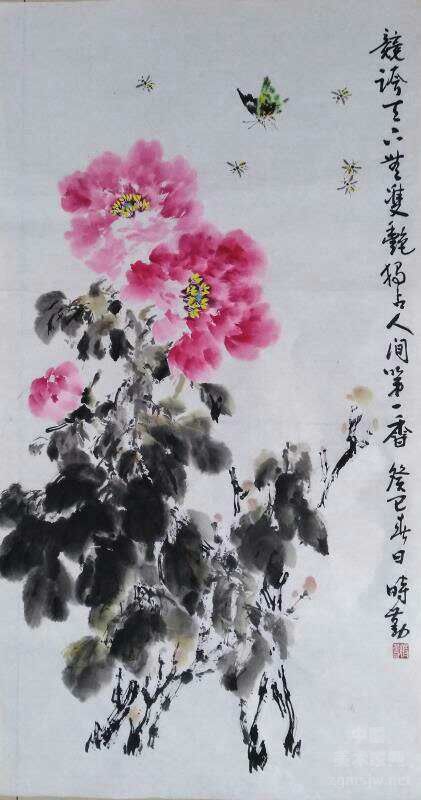 競誇天下無雙艷独占人间第一香 癸巳春日 時勤
中国
美术家网
zgmsjw.net